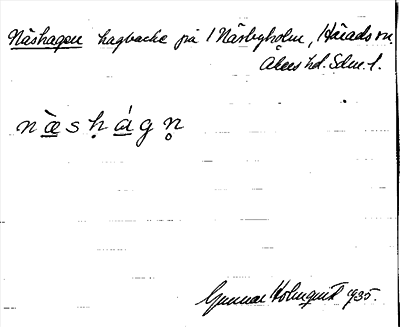 Näshagen hagbacke på 1 Näsbyholm, Härads sn.
Åkers hd. Sdm. l.
næ̀shágn̥
Gunnar Holmquist 1935.